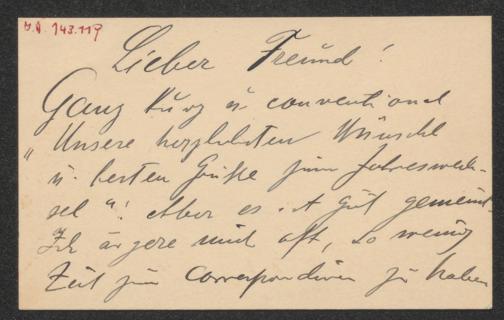 H.A. 143.119
Lieber Freund!
Ganz kurz u. conventionel
"Unsere herzlichsten Wünsche
u. besten Grüße zum Jahreswech-
sel"! Aber es ist gut gemeint.
Ich ärgere mich oft, so wenig
Zeit zum correspondiren zu haben